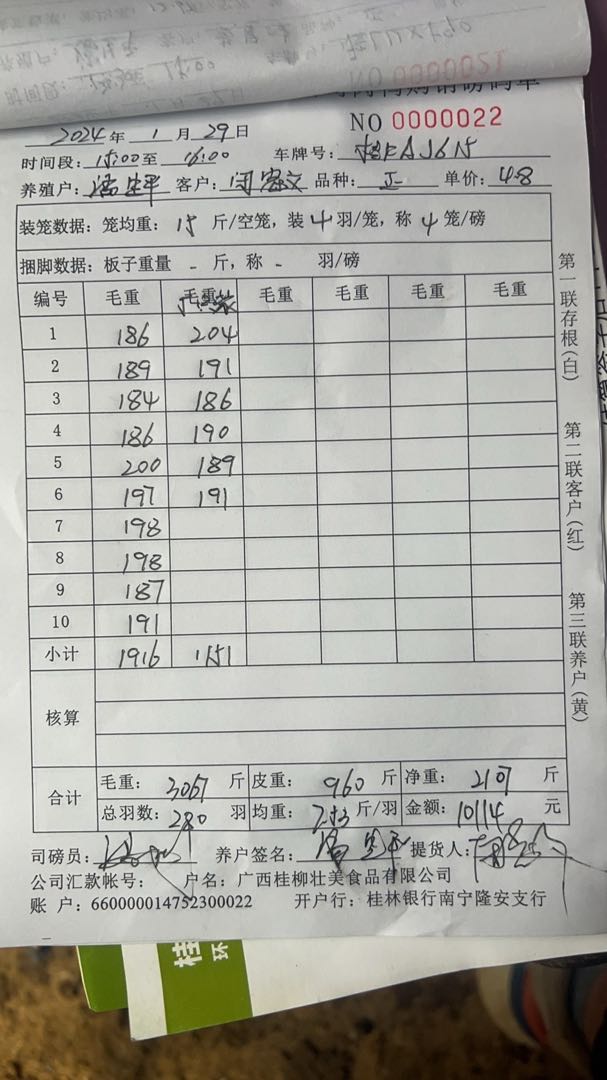 NO 0000021
NO 0000022
2024年 1 月 29日
时间段: 15:00至 16:00 车牌号:
养殖户: 客户: 品种: 正 单价: 4.8
装笼数据: 笼均重: 15 斤/空笼, 装 4 羽/笼, 称 4 笼/磅
捆脚数据: 板子重量 - 斤, 称 - 羽/磅
编号 毛重 毛重 毛重 毛重 毛重 毛重
1 186 204
2 189 191
3 184 186
4 186 190
5 200 189
6 197 191
7 198
8 198
9 187
10 191
小计 1916 1151
核算
合计 毛重: 3067 斤 皮重: 960 斤 净重: 2107 斤
总羽数: 280 羽 均重: 7.53 斤/羽 金额: 10114 元
司磅员: 养户签名: 提货人:
公司汇款帐号: 户名: 广西桂柳壮美食品有限公司
账 户: 660000014752300022 开户行: 桂林银行南宁隆安支行
第一联存根(白)
第二联客户(红)
第三联养户(黄)
桂
环